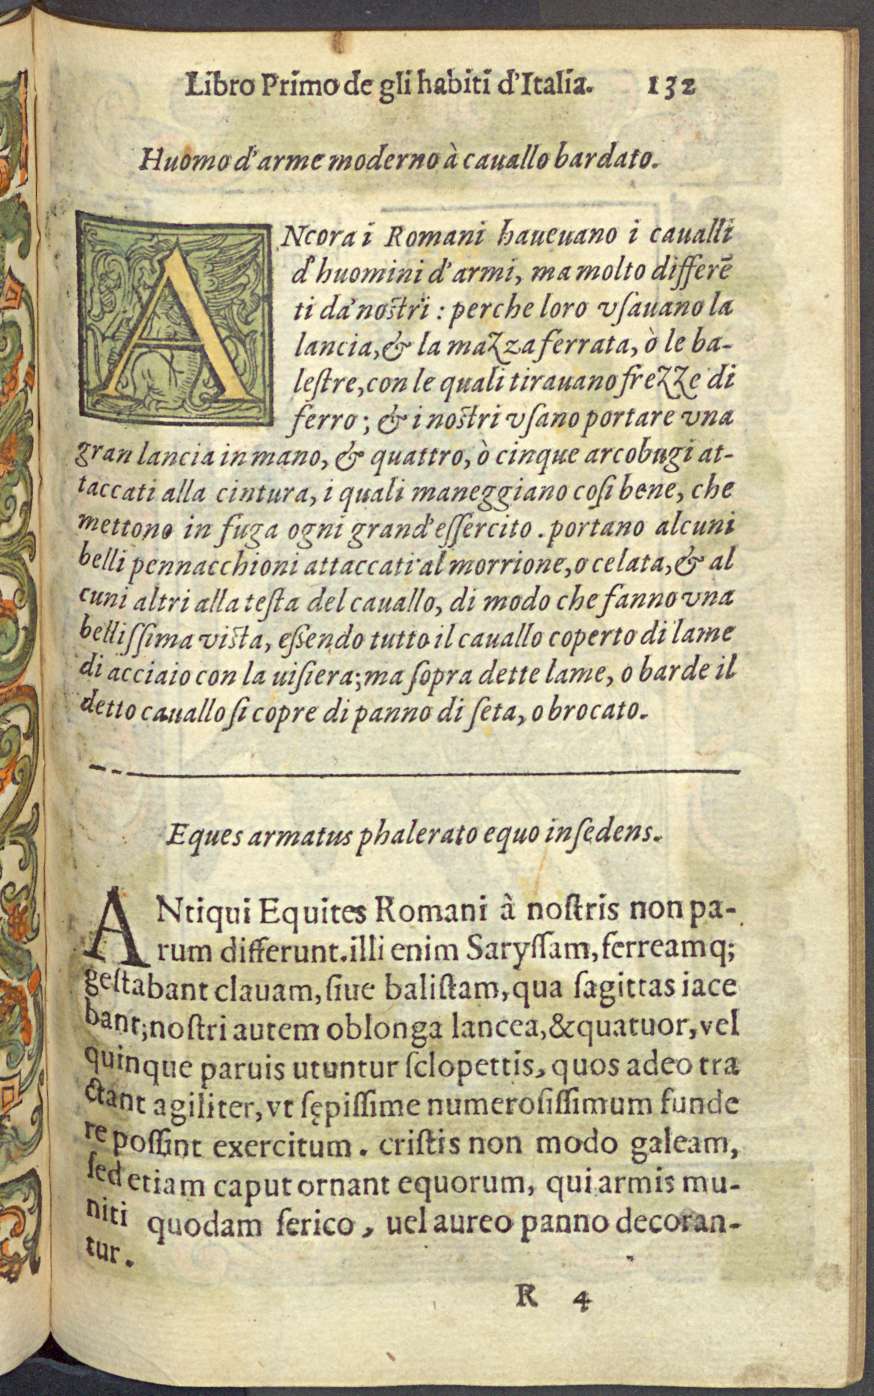 Libro Primo de gli habiti d'Italia. 132
Huomo d'arme moderno à cauallo bardato.
ANcora i Romani haueuano i caualli
d'huomini d'armi, ma molto differẽ
ti da' nostri : perche loro vſauano la
lancia, & la mazza ferrata, ò le ba-
leſtre, con le quali tirauano frezze di
ferro ; & i nostri vſano portare vna
gran lancia in mano, & quattro, ò cinque arcobugi at-
taccati alla cintura, i quali maneggiano coſi bene, che
mettono in fuga ogni grand'eſſercito . portano alcuni
belli pennacchioni attaccati al morrione, o celata, & al
cuni altri alla teſta del cauallo, di modo che fanno vna
belliſſima viſta, eſſendo tutto il cauallo coperto di lame
di acciaio con la uiſiera; ma ſopra dette lame, o barde il
detto cauallo ſi copre di panno di ſeta, o brocato.
Eques armatus phalerato equo inſedens.
ANtiqui Equites Romani à noſtris non pa-
rum differunt. illi enim Saryſſam, ferreamq;
geſtabant clauam, ſiue baliſtam, qua ſagittas iace
bant; noſtri autem oblonga lancea, & quatuor, vel
quinque paruis utuntur ſclopettis, quos adeo tra
ctant agiliter, vt ſępiſſime numeroſiſſimum funde
re poſſint exercitum . criſtis non modo galeam,
ſed etiam caput ornant equorum, qui armis mu-
niti quodam ſerico , uel aureo panno decoran-
tur.
R 4